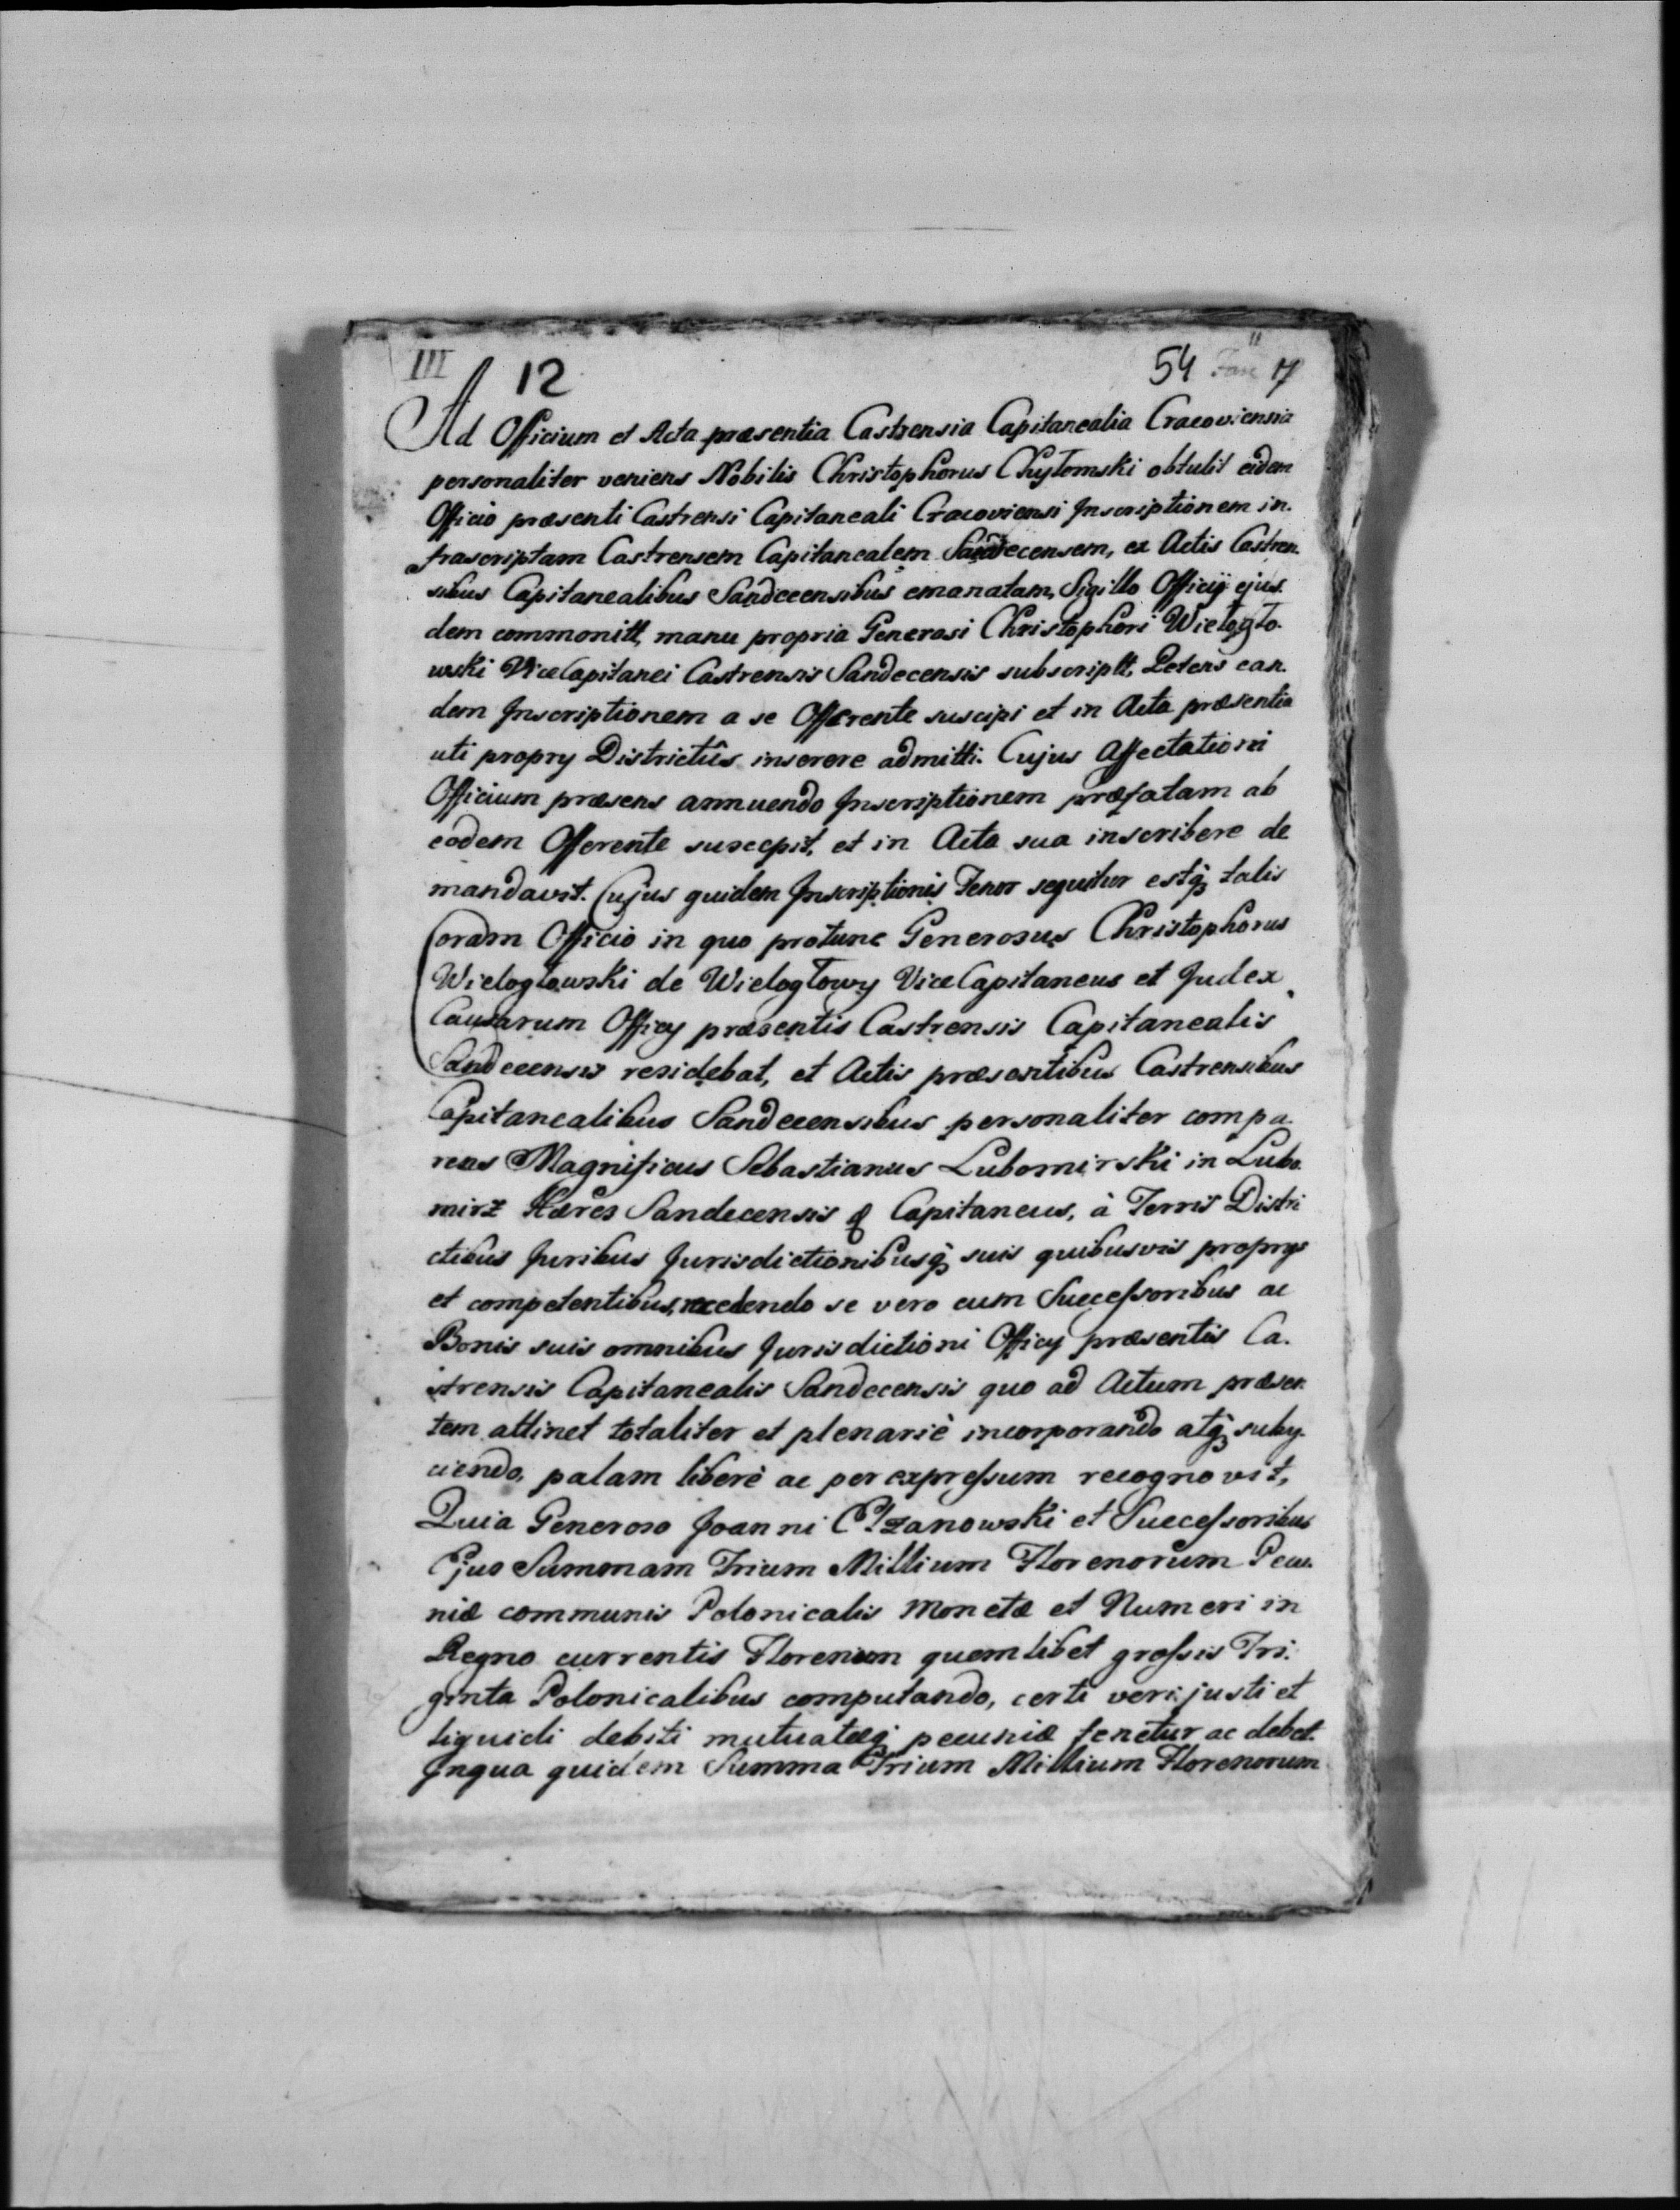 III 12 54 11 17
Ad Officium et Acta præsentia Castrensia Capitanealia Cracoviensia
personaliter veniens Nobilis Christophorus Chytomski obtulit eidem
Officio præsenti Castrensi Capitaneali Cracoviensi Inscriptionem in.
frascriptam Castrensem Capitanealem Sandecensem, ex Actis Castren.
sibus Capitanealibus Sandecensibus emanatam, Sigillo Officij ejus.
dem commonitt, manu propria Generosi Christophori Wielogło.
wski ViceCapitanei Castrensis Sandecensis subscriptt, Petens ean.
dem Inscriptionem a se Offerente suscipi et in Acta præsentia
uti propry Districtûs inserere admitti. Cujus Affectationi
Officium præsens annuendo Inscriptionem præfatam ab
eodem Offerente suscepit, et in Acta sua inscribere de
mandavit. Cujus quidem Inscriptionis Tenor sequitur estq́; talis
Coram Officio in quo protunc Generosus Christophorus
Wielogłowski de Wielogłowy ViceCapitaneus et Judex
Causarum Officy præsentis Castrensis Capitanealis
Sandecensis residebat, et Actis præsentibus Castrensibus
Capitanealibus Sandecensibus personaliter compa.
rens Magnificus Sebastianus Lubomirski in Lubo.
mirz Hæres Sandecensis & Capitaneus, à Terris Distri
ctibus Juribus Jurisdictionibusq́; suis quibusvis proprys
et competentibus, recedendo se vero cum Successoribus ac
Bonis suis omnibus Jurisdictioni Officy præsentis Ca.
strensis Capitanealis Sandecensis quo ad Actum præsen.
tem attinet totaliter et plenariè incorporando atq́; suby.
ciendo, palam liberè ac per expressum recognovit,
Quia Generoso Joanni Człanowski et Successoribus
Ejus Summam Trium Millium Florenorum Pecu.
niæ communis Polonicalis Monetæ et Numeri in
Regno currentis Florenum quemlibet grossis Tri.
ginta Polonicalibus computando, certi veri justi et
liquidi debiti mutuatæq́; pecuniæ tenetur ac debet.
Inqua quidem Summa Trium Millium Florenorum